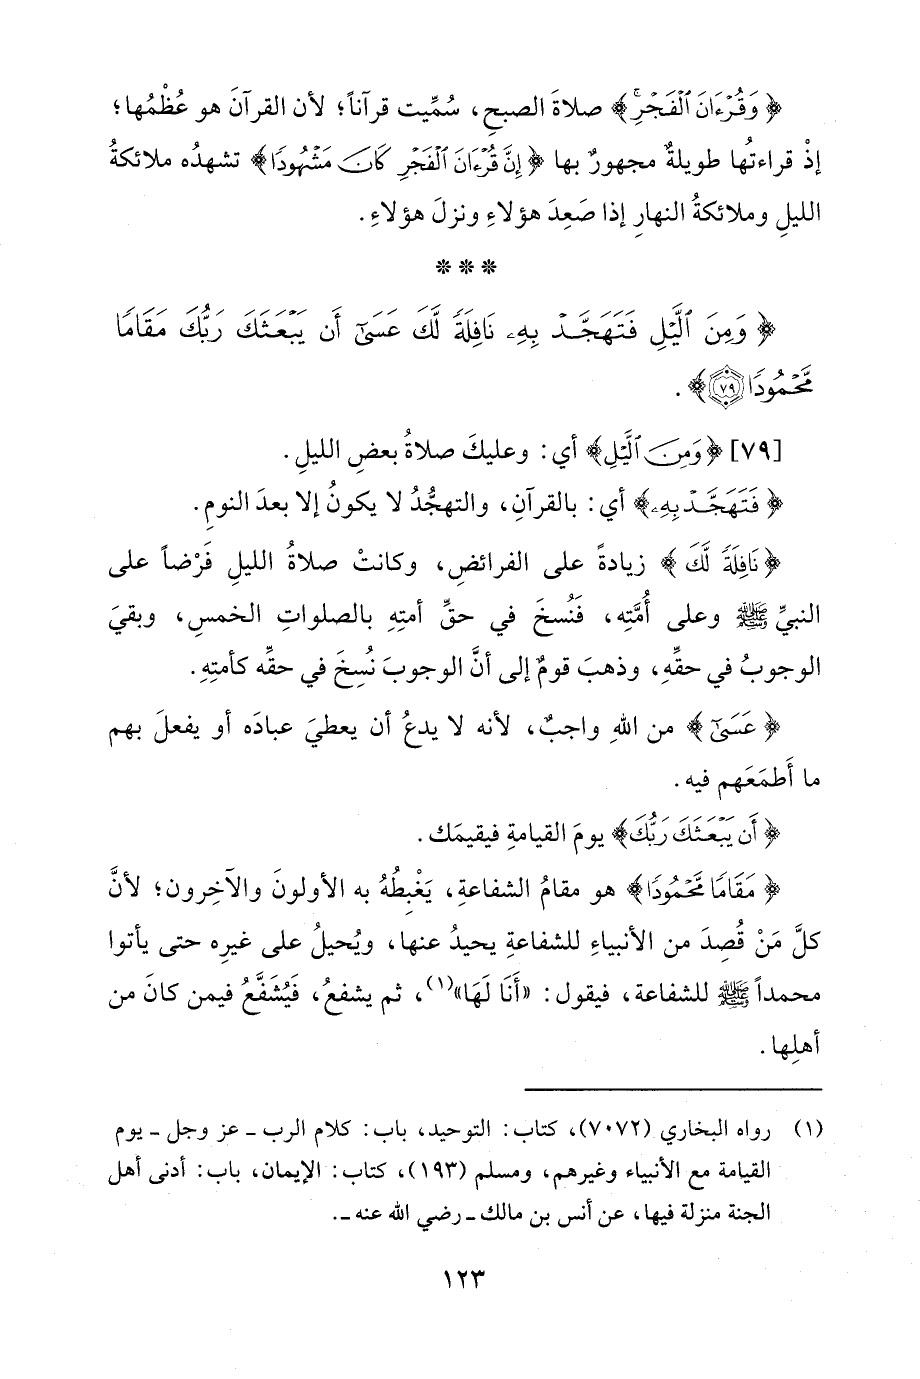 ﴿وَقُرْءَانَ ٱلْفَجْرِ﴾ صلاةَ الصبحِ، سُمِّيت قرآناً؛ لأن القرآنَ هو عُظْمُها؛
إذْ قراءتُها طويلةٌ مجهورٌ بها ﴿إِنَّ قُرْءَانَ ٱلْفَجْرِ كَانَ مَشْهُودًا﴾ تشهدُه ملائكةُ
الليلِ وملائكةُ النهارِ إذا صَعِدَ هؤلاءِ ونزلَ هؤلاءِ.
* * *
﴿وَمِنَ ٱلَّيْلِ فَتَهَجَّدْ بِهِۦ نَافِلَةً لَّكَ عَسَىٰٓ أَن يَبْعَثَكَ رَبُّكَ مَقَامًا
مَّحْمُودًا ﴿٧٩﴾﴾.
[٧٩] ﴿وَمِنَ ٱلَّيْلِ﴾ أي: وعليكَ صلاةُ بعضِ الليلِ.
﴿فَتَهَجَّدْ بِهِۦ﴾ أي: بالقرآنِ، والتهجُّدُ لا يكونُ إلا بعدَ النومِ.
﴿نَافِلَةً لَّكَ﴾ زيادةً على الفرائضِ، وكانتْ صلاةُ الليلِ فَرْضاً على
النبيِّ ﷺ وعلى أُمَّتِه، فَنُسخَ في حقِّ أمتِهِ بالصلواتِ الخمسِ، وبقيَ
الوجوبُ في حقِّهِ، وذهبَ قومٌ إلى أنَّ الوجوبَ نُسِخَ في حقِّه كأمتِهِ.
﴿عَسَىٰٓ﴾ من اللهِ واجبٌ، لأنه لا يدعُ أن يعطيَ عبادَه أو يفعلَ بهم
ما أَطمَعَهم فيه.
﴿أَن يَبْعَثَكَ رَبُّكَ﴾ يومَ القيامةِ فيقيمَك.
﴿مَقَامًا مَّحْمُودًا﴾ هو مقامُ الشفاعةِ، يَغْبِطُهُ به الأولونَ والآخِرون؛ لأنَّ
كلَّ مَنْ قُصِدَ من الأنبياءِ للشفاعةِ يحيدُ عنها، ويُحيلُ على غيرِه حتى يأتوا
محمداً ﷺ للشفاعة، فيقول: «أَنَا لَهَا»(١)، ثم يشفعُ، فَيُشَفَّعُ فيمن كانَ من
أهلِها.
(١) رواه البخاري (٧٠٧٢)، كتاب: التوحيد، باب: كلام الرب ـ عز وجل ـ يوم
القيامة مع الأنبياء وغيرهم، ومسلم (١٩٣)، كتاب: الإيمان، باب: أدنى أهل
الجنة منزلة فيها، عن أنس بن مالك ـ رضي الله عنه ـ.
١٢٣